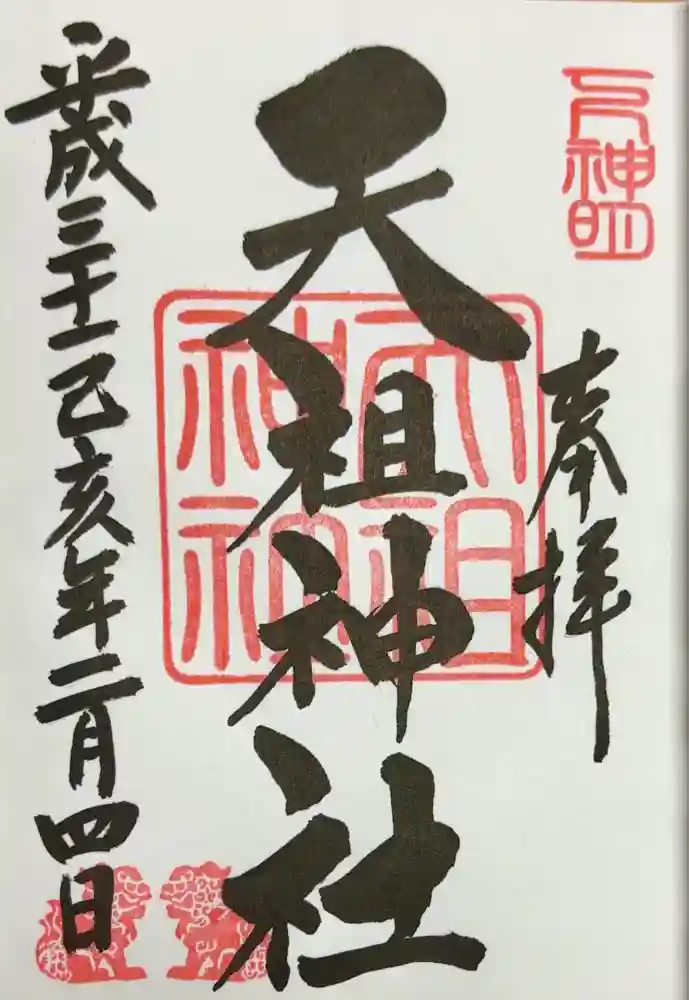 元神明
奉拝
天祖神社
天祖神社
平成三十一己亥年二月四日